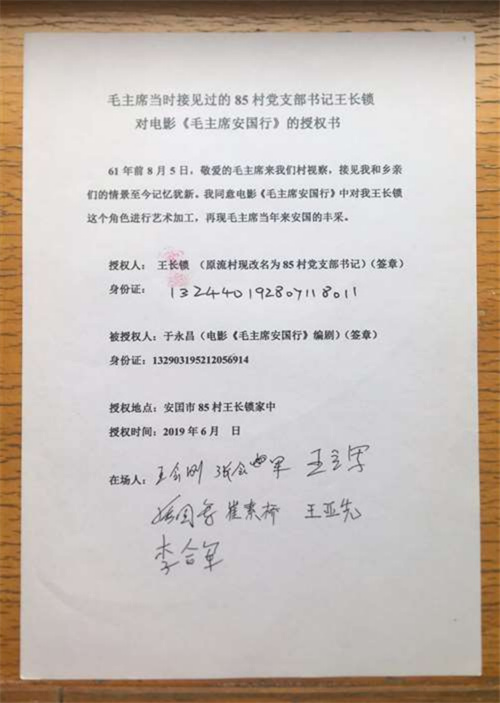 毛主席当时接见过的 85 村党支部书记王长锁
对电影《毛主席安国行》的授权书
61 年前 8 月 5 日，敬爱的毛主席来我们村视察，接见我和乡亲
们的情景至今记忆犹新。我同意电影《毛主席安国行》中对我王长锁
这个角色进行艺术加工，再现毛主席当年来安国的丰采。
授权人： 王长锁 （原流村现改名为 85 村党支部书记）（签章）
身份证： 132440192807118011
被授权人：于永昌（电影《毛主席安国行》编剧）（签章）
身份证：132903195212056914
授权地点：安国市 85 村王长锁家中
授权时间：2019 年 6 月 日
在场人：
崔素桥 王亚先
李合军